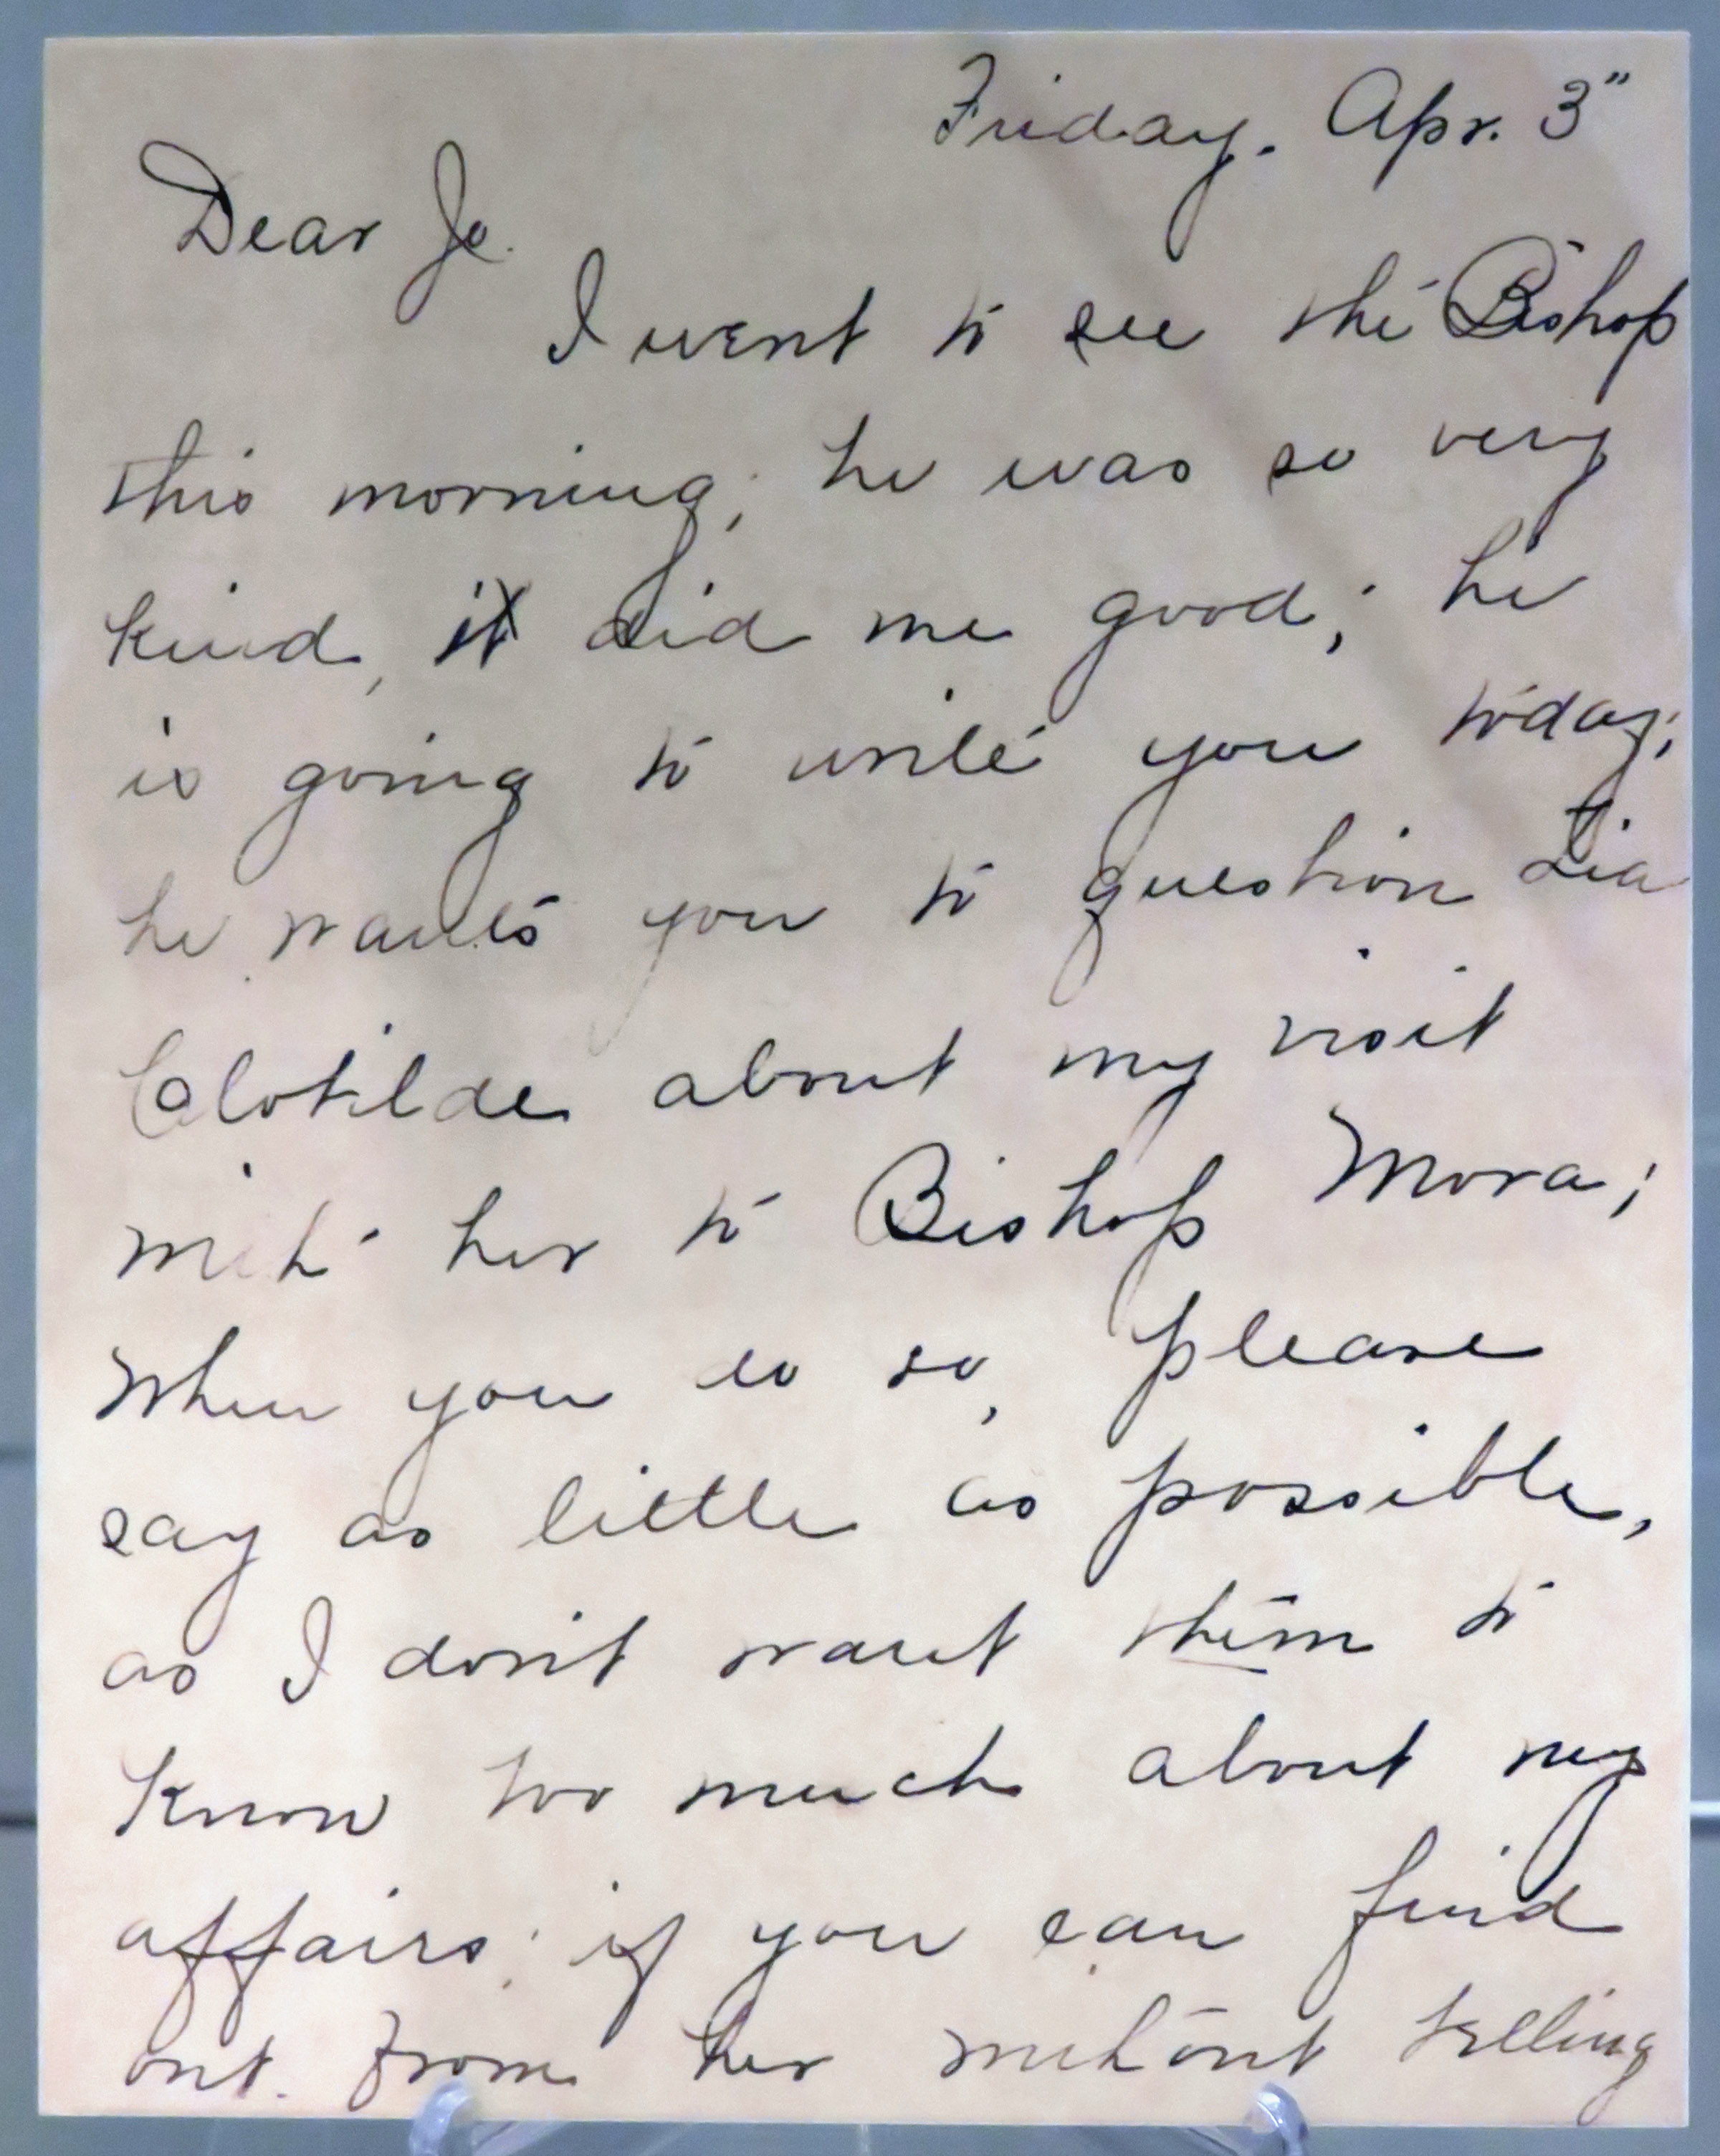 Friday. Apr. 3"
Dear Jo.
I went to see the Bishop
this morning; he was so very
kind, it did me good; he
is going to write you today;
he wants you to question Tia
Clotilde about my visit
with her to Bishop Mora;
When you do so, please
say as little as possible,
as I don't want them to
know too much about my
affairs; if you can find
out from her without telling